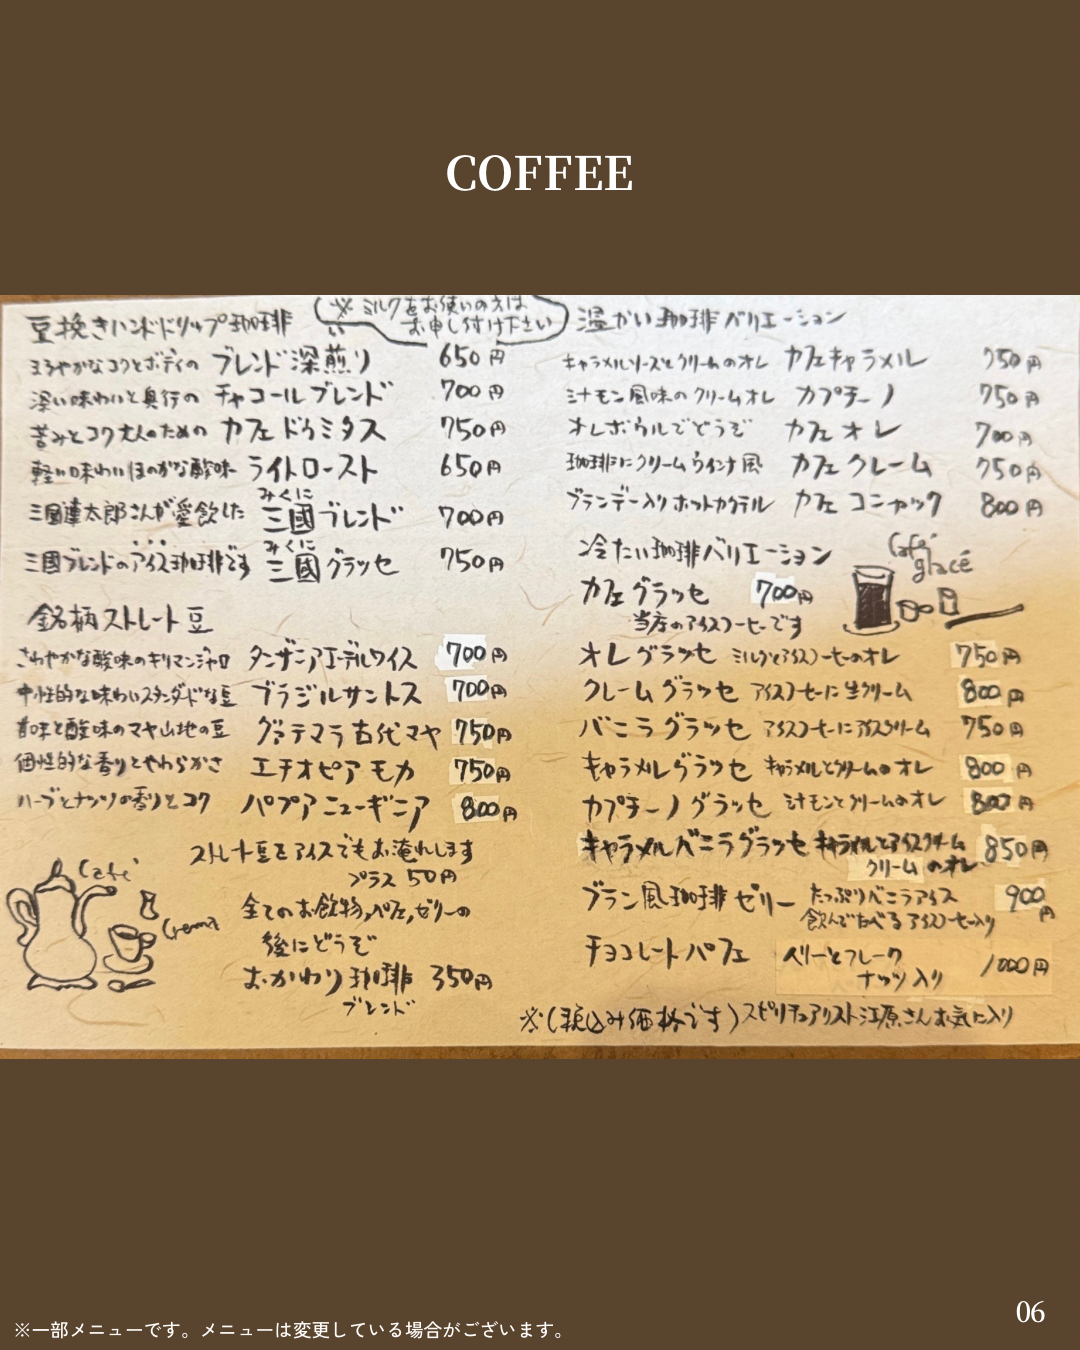 COFFEE
豆挽きハンドドリップ珈琲
※ミルクをお使いの方は
お申し付け下さい
まろやかなコクとボディの ブレンド深煎り 650円
深い味わいと奥行の チャコールブレンド 700円
苦みとコク大人のための カフェ ドゥミタス 750円
軽い味わいほのかな酸味 ライトロースト 650円
三國連太郎さんが愛飲した 三國ブレンド 700円
みくに
三國ブレンドのアイス珈琲です 三國グラッセ 750円
みくに
銘柄ストレート豆
さわやかな酸味のキリマンジャロ タンザニアエーデルワイス 700円
中性的な味わいスタンダードな豆 ブラジルサントス 700円
甘味と酸味のマヤ山地の豆 グァテマラ古代マヤ 750円
個性的な香りとやわらかさ エチオピア モカ 750円
ハーブとナッツの香りとコク パプアニューギニア 800円
ストレート豆をアイスでもお淹れします
プラス 50円
全てのお飲物、パフェ、ゼリーの
後にどうぞ
おかわり珈琲 350円
ブレンド
Café
Crema
温かい珈琲バリエーション
キャラメルソースとクリームのオレ カフェキャラメル 750円
シナモン風味のクリームオレ カプチーノ 750円
オレボウルでどうぞ カフェ オレ 700円
珈琲にクリームウインナ風 カフェ クレーム 750円
ブランデー入りホットカクテル カフェ コニャック 800円
冷たい珈琲バリエーション
Café glacé
カフェグラッセ 700円
当店のアイスコーヒーです
オレグラッセ ミルクとアイスコーヒーのオレ 750円
クレームグラッセ アイスコーヒーに生クリーム 800円
バニラグラッセ アイスコーヒーにアイスクリーム 750円
キャラメルグラッセ キャラメルとクリームのオレ 800円
カプチーノグラッセ シナモンとクリームのオレ 800円
キャラメルバニラグラッセ キャラメルとアイスクリーム 850円
クリームのオレ
ブラン風珈琲ゼリー たっぷりバニラアイス 900円
飲んで食べるアイスコーヒー入り
チョコレートパフェ ベリーとフレーク 1000円
ナッツ入り
※(税込み価格です)スピリチュアリスト江原さんお気に入り
※一部メニューです。メニューは変更している場合がございます。
06